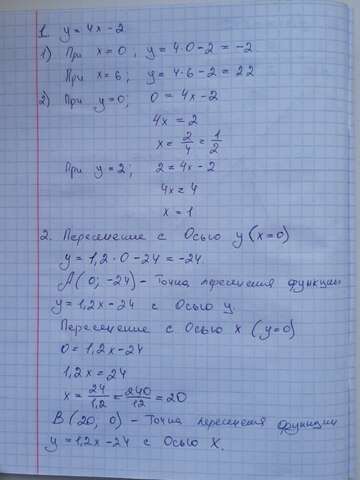 1. y = 4x - 2
1) При x = 0, y = 4·0 - 2 = -2
При x = 6; y = 4·6 - 2 = 22
2) При y = 0; 0 = 4x - 2
4x = 2
x = 2/4 = 1/2
При y = 2; 2 = 4x - 2
4x = 4
x = 1
2. Пересечение с Осью y (x = 0)
y = 1,2·0 - 24 = -24
A (0; -24) - Точка пересечения функции
y = 1,2x - 24 с Осью y.
Пересечение с Осью x (y = 0)
0 = 1,2x - 24
1,2x = 24
x = 24/1,2 = 240/12 = 20
B (20; 0) - Точка пересечения функции
y = 1,2x - 24 с Осью X.